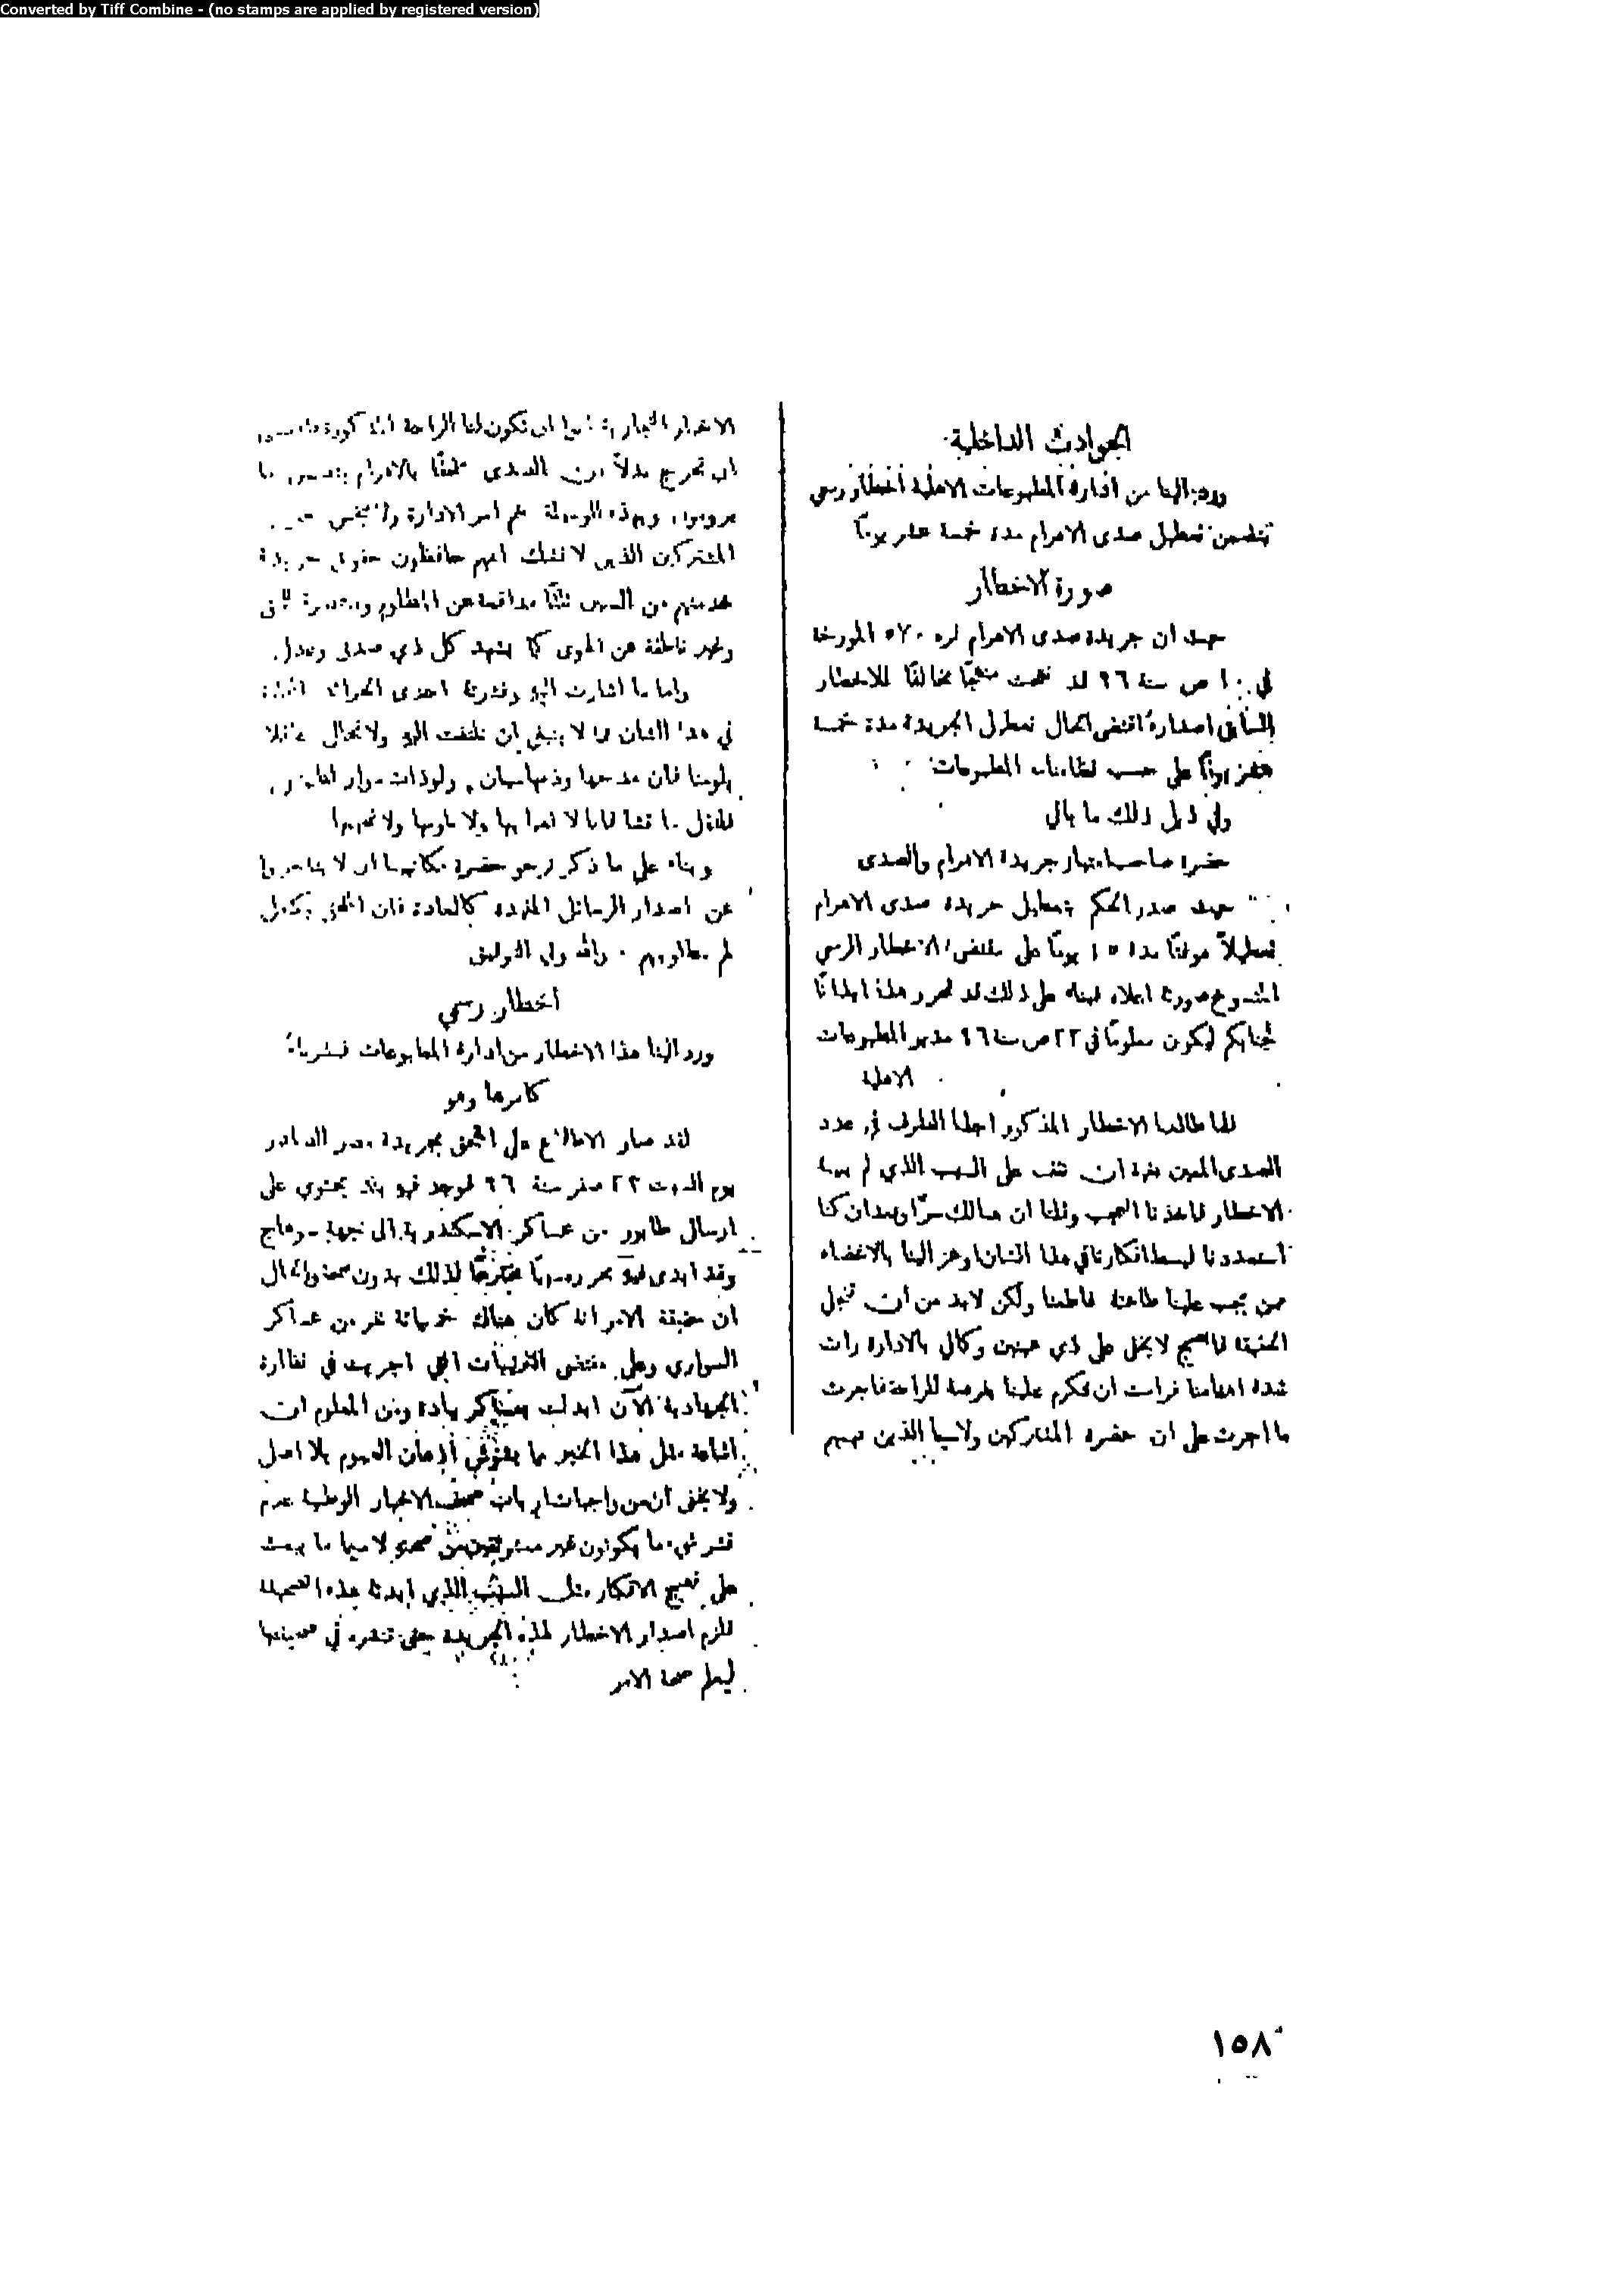 Converted by Tiff Combine - (no stamps are applied by registered version)
الحوادث الداخلية
ورد الينا من ادارة المطبوعات الاهلية اخطار رسمي
يتضمن تعطيل صدى الاهرام مدة خمسة عشر يوماً
صورة الاخطار
حيث ان جريدة صدى الاهرام نمره ٥٧٠ المورخة
في ١٠ ص سنة ٩٦ قد مخالفًا للاخطار
السابق اصداره اقتضى الحال تعطيل الجريدة مدة خمسة
عشر يوماً على حسب نظامنامه المطبوعات
وفي ذيل ذلك ما ياتي
حضرة صاحب امتياز جريدة الاهرام والصدى
حيث صدر الحكم بتعطيل جريدة صدى الاهرام
تعطيلاً موقتًا مدة ١٥ يومًا على مقتضى الاخطار الرسمي
صورته اعلاه فبناء على ذلك قد تحرر هذا ايذانًا
لجنابكم ليكون معلومًا في ٢٢ ص سنة ٩٦ مدير المطبوعات
الاهلية
فلما طالعنا الاخطار المذكور اجلنا الطرف في عدد
الصدى المعين نمرة ان نقف على السبب الذي لم
الاخطار فاخذنا العجب وقلنا ان هنالك سرًّا وبعد ان كنا
استعددنا لبسط افكارنا في هذا الشان اوعز الينا بالاغضاء
ممن يجب علينا طاعته فاطعنا ولكن لابد من ان نقول
الحقيقة فالصحيح لا يخفى على ذي عينين وكاني بالادارة رات
شدة اهتمامنا فرامت ان تتكرم علينا بفرصة للراحة فاجرت
ما اجرت على ان حضره المشتركين ولاسيا الذين تهمهم
الاخبار التجارية ان تكون لنا الراحة المذكورة
ان نخرج بدلاً من الصدى ملحقًا بالاهرام يتضمن ما
يرومون وبهذه الوسيلة يتم امر الادارة ولا يبخس حق
المشتركين الذين لا نشك انهم حافظون حقوق جريدة
تخدمهم من السنين ثلثًا مدافعة عن المظلوم وللحق
وغير ناطقة عن الهوى كما يشهد كل ذي صدق وعدل
واما ما اشارت اليه ونشرته احدى الجرائد المحلية
في هذا الشان مما لا ينبغي ان نلتفت اليه ولا نخال عاقلا
يلومنا فان مدحها وذمها سيان ولو ذات سوار
فلتقل ما تشا فاننا لا نعبا بها ولا نلومها ولا نجيبها
وبناء على ما ذكر نرجو حضرة مكاتبينا ان لا يتاخروا
عن اصدار الرسائل المفيدة كالعادة فان الملحق يتكفل
لهم بمطلوبهم . والله ولي التوفيق
اخطار رسمي
ورد الينا هذا الاخطار من ادارة المطبوعات فنشرناه
كامرها وهو
لقد صار الاطلاع على الملحق بجريدة مصر الصادر
يوم السبت ٢٢ صفر سنة ٩٦ فوجد فيه بند يحتوي على
ارسال طابور من عساكر الاسكندرية الى جهة سوهاج
وقد ابدى فيه محرره سببًا مخترعًا لذلك بدون صحة والحال
ان حقيقة الامر انه كان هناك خمسمائة نفر من عساكر
السواري وعلى مقتضى الترتيبات التي اجريت في نظارة
الجهادية الآن ابدلت بعساكر بيادة ومن المعلوم ان
اشاعة مثل هذا الخبر مما يشوش اذهان العموم بلا اصل
ولا يخفى ان من واجبات ارباب صحف الاخبار الوطنية عدم
نشر شيء ما يكونون غير مستوثقين من صحته لاسيما ما يبعث
على تهييج الافكار مثل السبب الذي ابدته هذه الصحيفة
فلزم اصدار الاخطار لهذه الجريدة حتى تنشره في صحيفتها
ليعلم صحة الامر
١٥٨